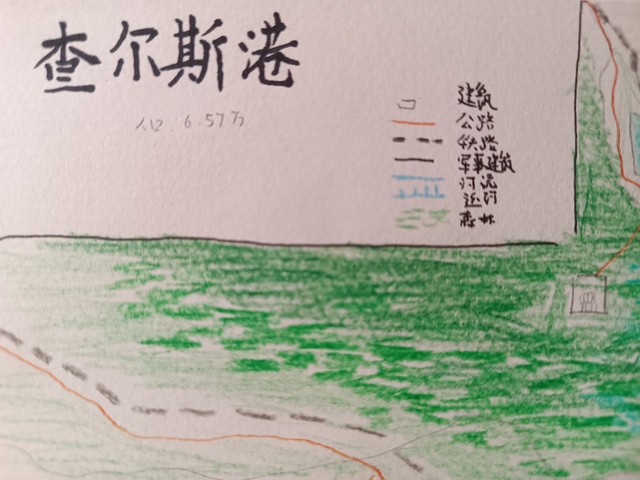 查尔斯港
人口 6.57万
建筑
公路
铁路
军事建筑
河流
运河
森林